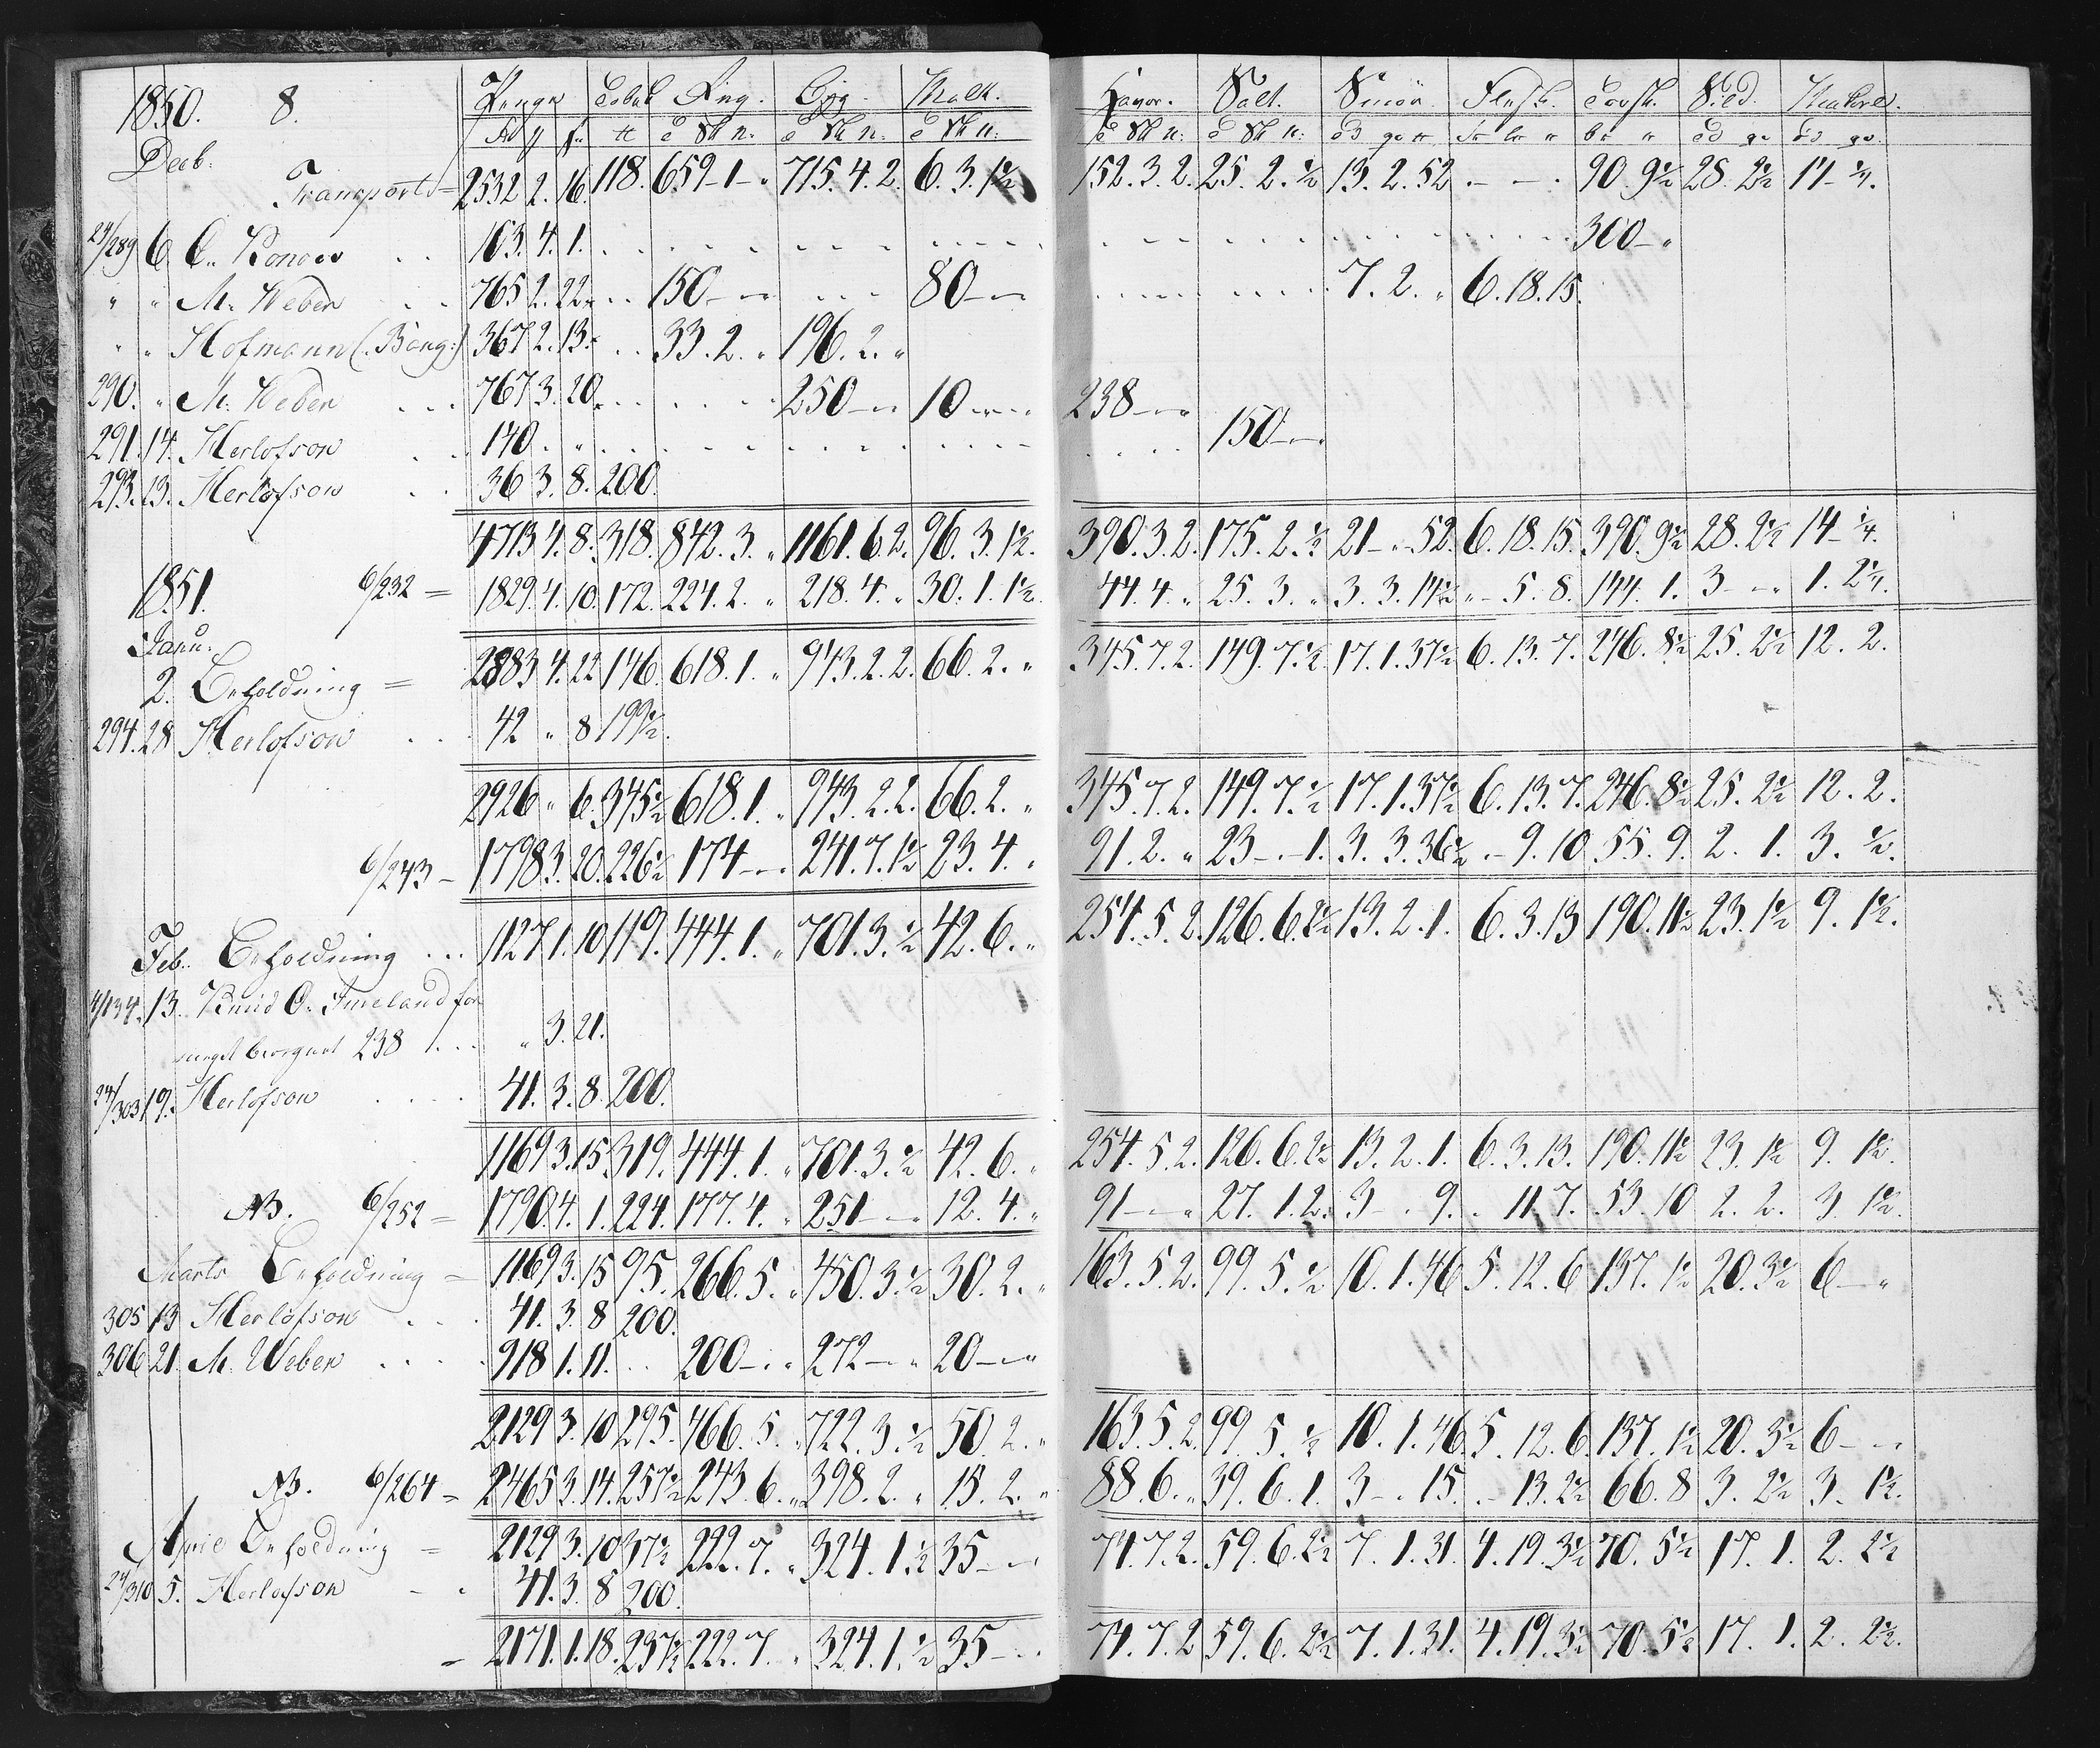 1850. 8. Penge Tobak Rug. Byg. Malt. Havre. Salt. Smör Flesk. Torsk. Sild. Makrel.
Decb:
Transport = 2532 2. 16. 118. 659-1-" 715.4.2. 6.3.1½ 152.3.2. 25.2.½ 13.2.52 . - - . 90.9½ 28.2½ 14-¼.
24/289 6 C. Konow . . 103.4.1. 300-"
" " M. Weber . . 765 2. 22 150-"" 80-"" 7.2." 6.18.15.
" " Hofmann (:Bang:) 367 2. 13. 33.2." 196.2."
290. " M. Weber . . . 767 3. 20. 250-"" 10-"" 238-""
291. 14. Herlofson . . 140. " " 150-""
293. 13. Herlofson . . 36 3. 8. 200.
4713 4. 8. 318. 842.3." 1161.6.2. 96.3.1½. 390.3.2. 175.2.½ 21-"-52. 6.18.15. 390.9½ 28.2½ 14-¼.
1851. 6/232 = 1829. 4. 10. 172. 224.2." 218.4." 30.1.1½. 44.4." 25.3." 3.3.14½ "-5.8. 144.1. 3-"" 1.2¼.
Janu:
2. Beholdning = 2883 4. 22 146. 618.1." 943.2.2. 66.2." 345.7.2. 149.7.½. 17.1.37½ 6.13.7. 246.8½ 25.2½ 12.2.
294. 28 Herlofson . . . 42 " 8 199½.
2926 " 6. 345½ 618.1." 943.2.2. 66.2." 345.7.2. 149.7.½ 17.1.37½ 6.13.7. 246.8½ 25.2½ 12.2.
6/243 - 1798 3. 20. 226½ 174-"" 241.7.1½ 23.4." 91.2." 23-"-1. 3.3.36½ "-9.10 55.9. 2.1. 3.½.
Feb. Beholdning ... 1127 1. 10 119. 444.1." 701.3.½ 42.6." 254.5.2. 126.6.2½ 13.2.1. 6.3.13 190.11½ 23.1½ 9.1½.
4/134. 13. Knud O. Imeland for
238 . . . " 3. 21.
24/303 19. Herlofson . . . . 41. 3. 8. 200.
1169 3. 15 319. 444.1." 701.3.½ 42.6." 254.5.2. 126.6.2½ 13.2.1. 6.3.13. 190.11½ 23.1½ 9.1½.
NB. 6/252 = 1790. 4. 1. 224. 177.4." 251-"" 12.4." 91-"" 27.1.2. 3-.9. "11.7. 53.10 2.2. 3.1½.
Marts Beholdning = 1169 3. 15 95. 266.5." 450.3.½ 30.2." 163.5.2. 99.5.½ 10.1.46 5.12.6 137.1½ 20.3½ 6-"
305 13 Herlofson . . . 41. 3. 8 200.
306 21. M. Weber . . . . 918 1. 11. . . 200-"" 272-"" 20-""
2129 3. 10 295. 466.5." 722.3.½ 50.2." 163.5.2. 99.5.½ 10.1.46 5.12.6. 137.1½ 20.3½ 6-""
NB. 6/264 = 2465 3. 14. 257½ 243.6." 398.2." 15.2." 88.6." 39.6.1. 3-.15. "-13.2½ 66.8 3.2½ 3.1½.
April Beholdning = 2129 3. 10 37½ 222.7." 324.1.½ 35-"" 74.7.2. 59.6.2½ 7.1.31. 4.19.3½ 70.5½ 17.1. 2.2½
24/310 5. Herlofson - . 41. 3. 8 200.
= 2171. 1. 18. 237½ 222.7." 324.1.½ 35-"" 74.7.2 59.6.2½ 7.1.31. 4.19.3½ 70.5½ 17.1. 2.2½.